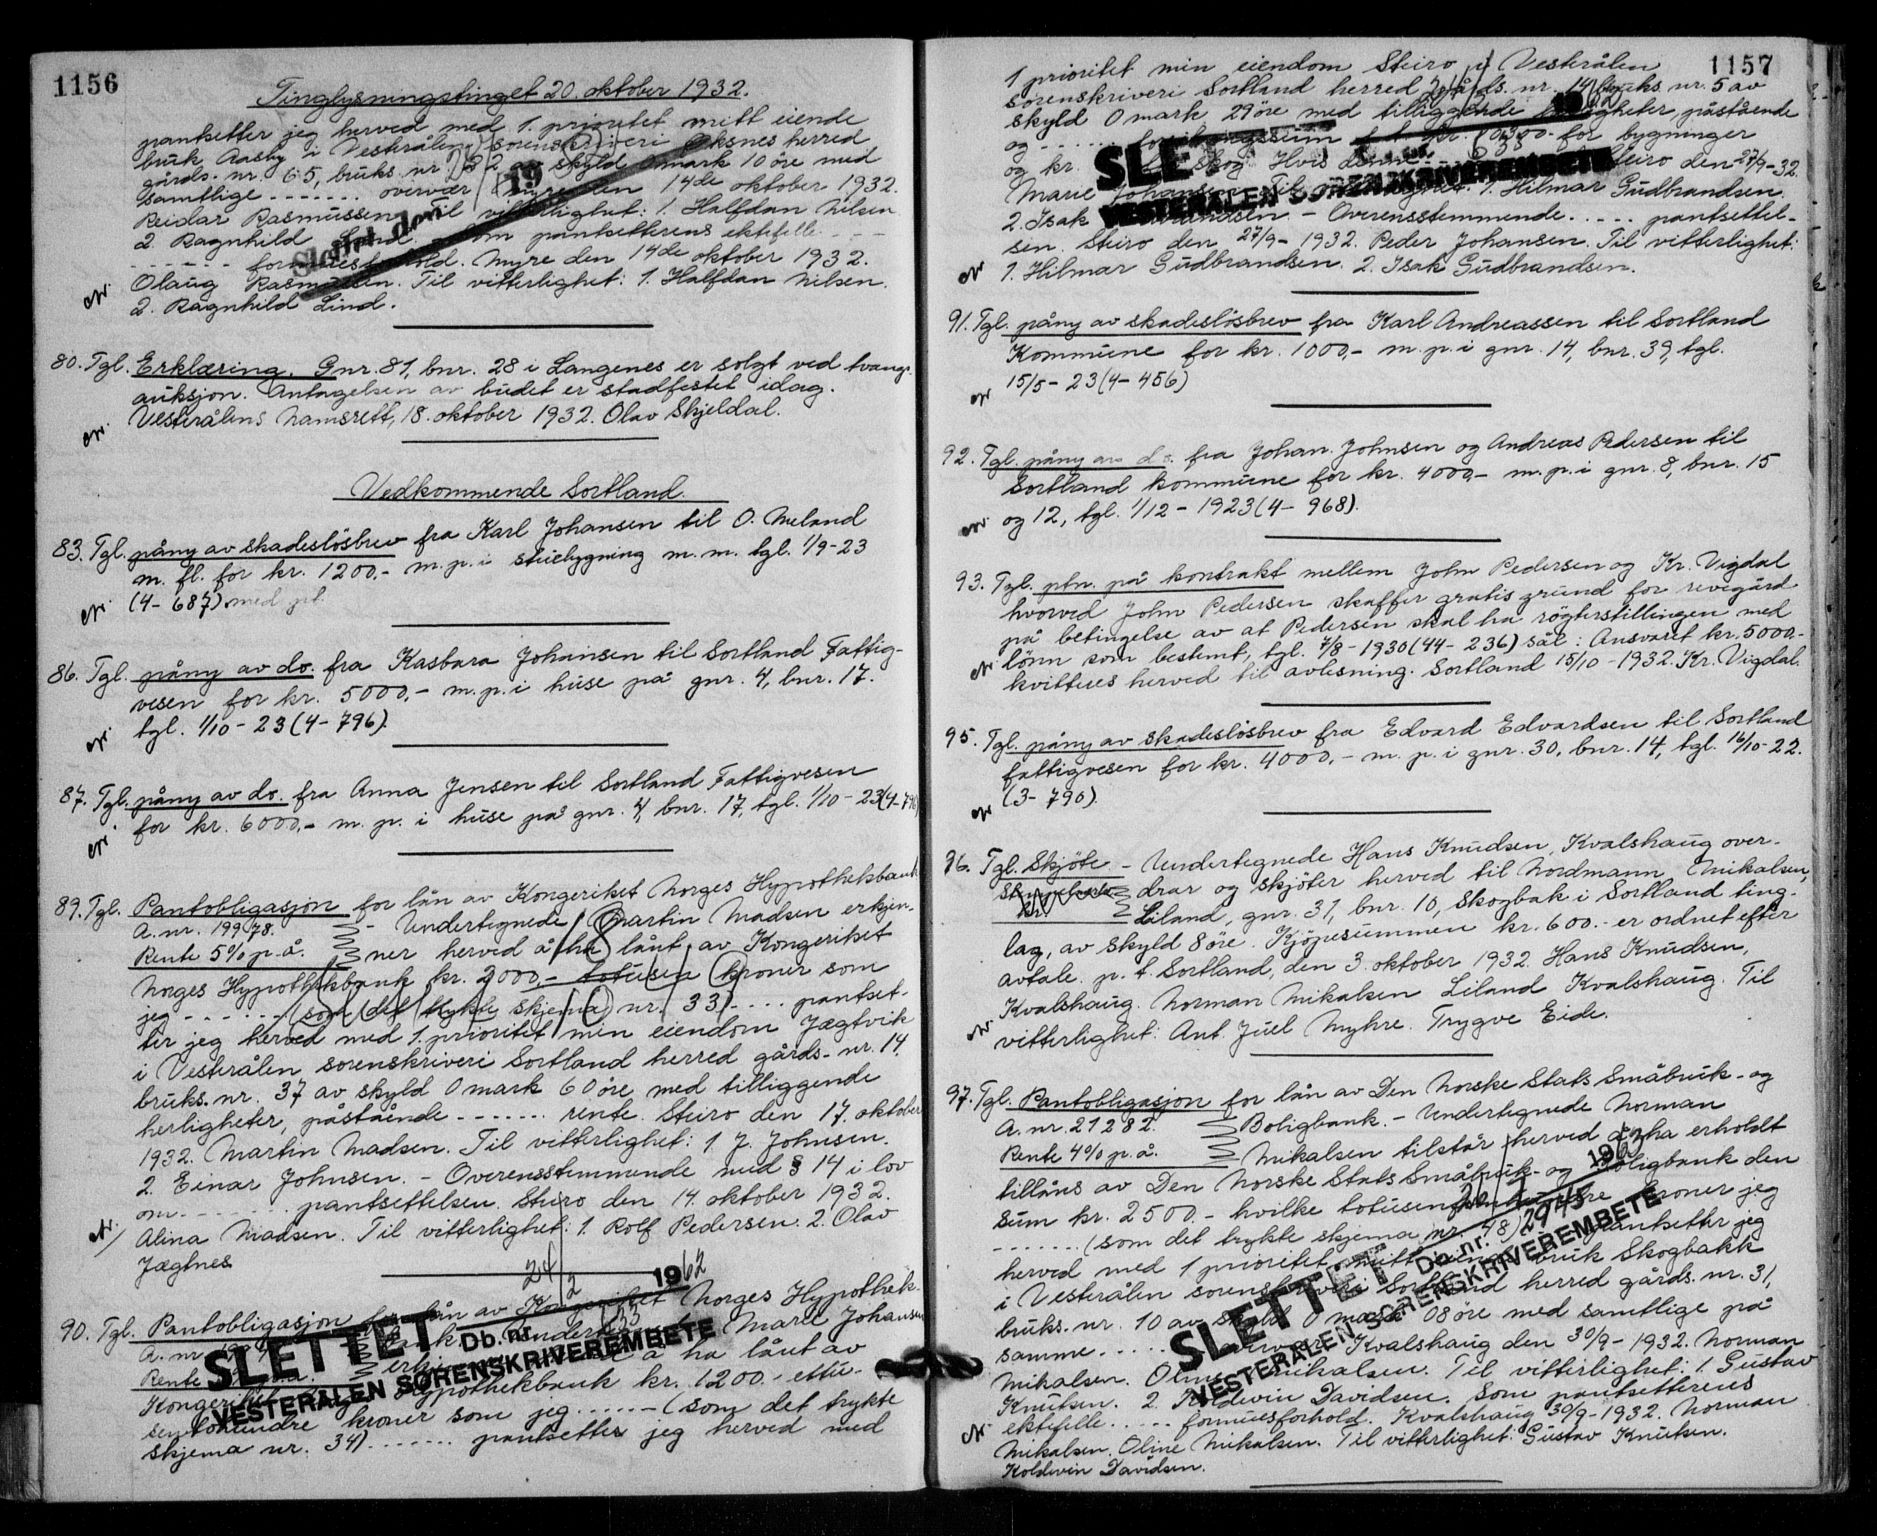 1156
Tinglysningstinget 20. oktober 1932.
pantsetter jeg herved med 1. prioritet mitt eiende
bruk Aasby i Vesterålen sorenskriveri Øksnes herred
gårds. nr. 65, bruks nr. skyld 0 mark 10 öre med
samtlige ....... overvær Myre den 14de oktober 1932.
Reidar Rasmussen. Til vitterlighet: 1. Halfdan Nilsen
2. Ragnhild Lind. - Som pantsetterens ektefelle ...
...... formuesforhold. Myre den 14de oktober 1932.
Olaug Rasmussen. Til vitterlighet: 1. Halfdan Nilsen.
2. Ragnhild Lind.
Slettet den 19
80. Tgl. Erklæring. Gnr. 81, bnr. 28 i Langenes er solgt ved tvangs-
auksjon. Antagelsen av budet er stadfestet idag.
Vesterålens Namsrett, 18. oktober 1932. Olav Skjeldal.
Vedkommende Sortland.
83. Tgl. påny av skadeslösbrev fra Karl Johansen til O. Meland
m. fl. for kr. 1200,- m. p. i stuebygning m. m. tgl. 1/9-23
(4-687) med pt.
86. Tgl. påny av do. fra Kasbara Johansen til Sortland Fattig-
vesen for kr. 5000,- m. p. i huse på gnr. 4, bnr. 17.
tgl. 1/10-23 (4-796).
87. Tgl. påny av do. fra Anna Jensen til Sortland Fattigvesen
for kr. 6000,- m. p. i huse på gnr. 4, bnr. 17, tgl. 1/10-23 (4-796)
89. Tgl. Pantobligasjon for lån av Kongeriket Norges Hypothekbank
A. nr. 19978. - Undertegnede Martin Madsen erkjen-
Rente 5% p. å. ner herved å ha lånt av Kongeriket
Norges Hypothekbank kr. 2000,- totusen kroner som
jeg ...... (som det trykte skjema nr. 33) .... pantset-
ter jeg herved med 1. prioritet min eiendom Jægtvik
i Vesterålen sorenskriveri Sortland herred gårds- nr. 14,
bruks. nr. 37 av skyld 0 mark 60 öre med tilliggende
herligheter, påstående ....... rente. Steiro den 17. oktober
1932. Martin Madsen. Til vitterlighet: 1 J. Johnsen.
2. Einar Johnsen. - Overensstemmende med § 14 i lov
om ........ pantsettelsen. Steiro den 14. oktober 1932.
Alina Madsen. Til vitterlighet: 1. Rolf Pedersen. 2. Olav
Jægtnes
24/2 1962
90. Tgl. Pantobligasjon for lån av Kongeriket Norges Hypothek-
A. nr. Marie Johansen
Rente å ha lånt av
SLETTET Db. nr. 635
VESTERÅLEN SØRENSKRIVEREMBETE
Kongeriket Hypothekbank kr. 1200.- ettu-
sentohundre kroner som jeg ...... (som det trykte
skjema nr. 34) ....... pantsetter jeg herved med
1157
1 prioritet min eiendom Steiro i Vesterålen
sorenskriveri Sortland herred gårds. nr. 14 bruks. nr. 5 av
skyld 0 mark, 29 öre med tilliggende herligheter, påstående
og ...... for bygninger
og kr. skog. Hvis denne Steiro den 27/9-32.
SLETTET Db. nr. 635
VESTERÅLEN SØRENSKRIVEREMBETE
Marie Johansen. Til vitterlighet: 1. Hilmar Gudbrandsen
2. Isak Gudbrandsen. - Overensstemmende ..... pantsettel-
sen. Steiro den 27/9-1932. Peder Johansen. Til vitterlighet:
1. Hilmar Gudbrandsen. 2. Isak Gudbrandsen.
91. Tgl. påny av skadeslösbrev fra Karl Andreassen til Sortland
Kommune for kr. 1000,- m. p. i gnr. 14, bnr. 39, tgl.
15/5-23 (4-456)
92. Tgl. påny av do. fra Johan Johnsen og Andreas Pedersen til
Sortland kommune for kr. 4000,- m. p. i gnr. 8, bnr. 15
og 12, tgl. 1/12-1923 (4-968).
93. Tgl. ptn. på kontrakt mellem John Pedersen og Kr. Vigdal
hvorved John Pedersen skaffer gratis grund for revegård
på betingelse av at Pedersen skal ha rögterstillingen med
lönn som bestemt, tgl. 4/8-1930 (44-236) sål: Ansvaret kr. 5000,-
kvitteres herved til avlesning. Sortland 15/10-1932. Kr. Vigdal.
95. Tgl. påny av skadeslösbrev fra Edvard Edvardsen til Sortland
fattigvesen for kr. 4000,- m. p. i gnr. 30, bnr. 14, tgl. 16/10-22.
(3-790).
96. Tgl. Skjöte - Undertegnede Hans Knudsen, Kvalshaug over-
drar og skjöter herved til Nordmann Mikalsen,
Liland, gnr. 31, bnr. 10, Skogbak i Sortland ting-
lag, av skyld 8 öre. Kjöpesummen kr. 600.- er ordnet efter
avtale. p. t. Sortland, den 3. oktober 1932. Hans Knudsen,
Kvalshaug. Norman Mikalsen Liland Kvalshaug. Til
vitterlighet: Ant. Juel Myhre. Trygve Eide.
97. Tgl. Pantobligasjon for lån av Den Norske Stats Småbruk- og
A. nr. 21282. Boligbank. - Undertegnede Norman
Rente 4% p. å. Mikalsen tilstår herved å ha erholdt
tillåns av Den Norske Stats Småbruk- og Boligbank den
sum kr. 2500.- hvilke totusenfemhundre kroner jeg
....... (som det trykte skjema nr. 48) pantsetter jeg
herved med 1 prioritet mitt eiende bruk Skogbakk
i Vesterålen sorenskriveri Sortland herred gårds. nr. 31,
bruks. nr. 10 av skyld 0 mark 08 öre med samtlige på
samme ..... overvær. Kvalshaug den 30/9-1932. Norman
SLETTET Db. nr. 2945 1963
VESTERÅLEN SØRENSKRIVEREMBETE
Mikalsen. Oline Mikalsen. Til vitterlighet: 1. Gustav
Knutsen. 2. Koldevin Davidsen. Som pantsetterens
ektefelle ..... formuesforhold. Kvalshaug 30/9-1932. Norman
Mikalsen. Oline Mikalsen. Til vitterlighet: Gustav Knutsen.
Koldevin Davidsen.